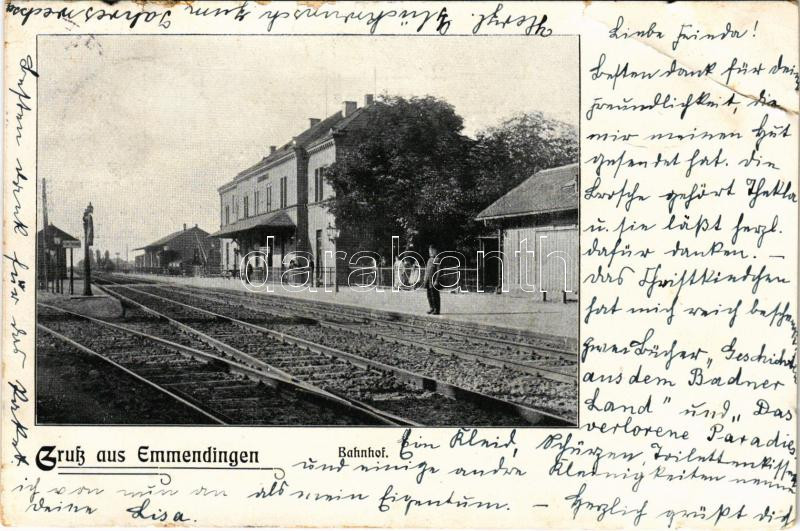 Liebe Frieda!
Besten Dank für deine
Freundlichkeit, die
mir meinen Hut
gesendet hat. Die
Brosche gehört Thekla
u. sie läßt herzl.
dafür danken. –
Das Christkindchen
hat mich reich besche
zwei Bücher „Geschicht
aus dem Badner
Land" und „Das
verlorene Paradies
Ein Kleid, Schürzen, Toilettenkissen
und einige andre Kleinigkeiten nenne
ich von nun an als mein Eigentum. – Herzlich grüßt dich
deine Lisa.
Besten Dank für das Paket
Herzl. Glückwunsch zum Jahreswechsel
Gruß aus Emmendingen
Bahnhof.
darabanth.com